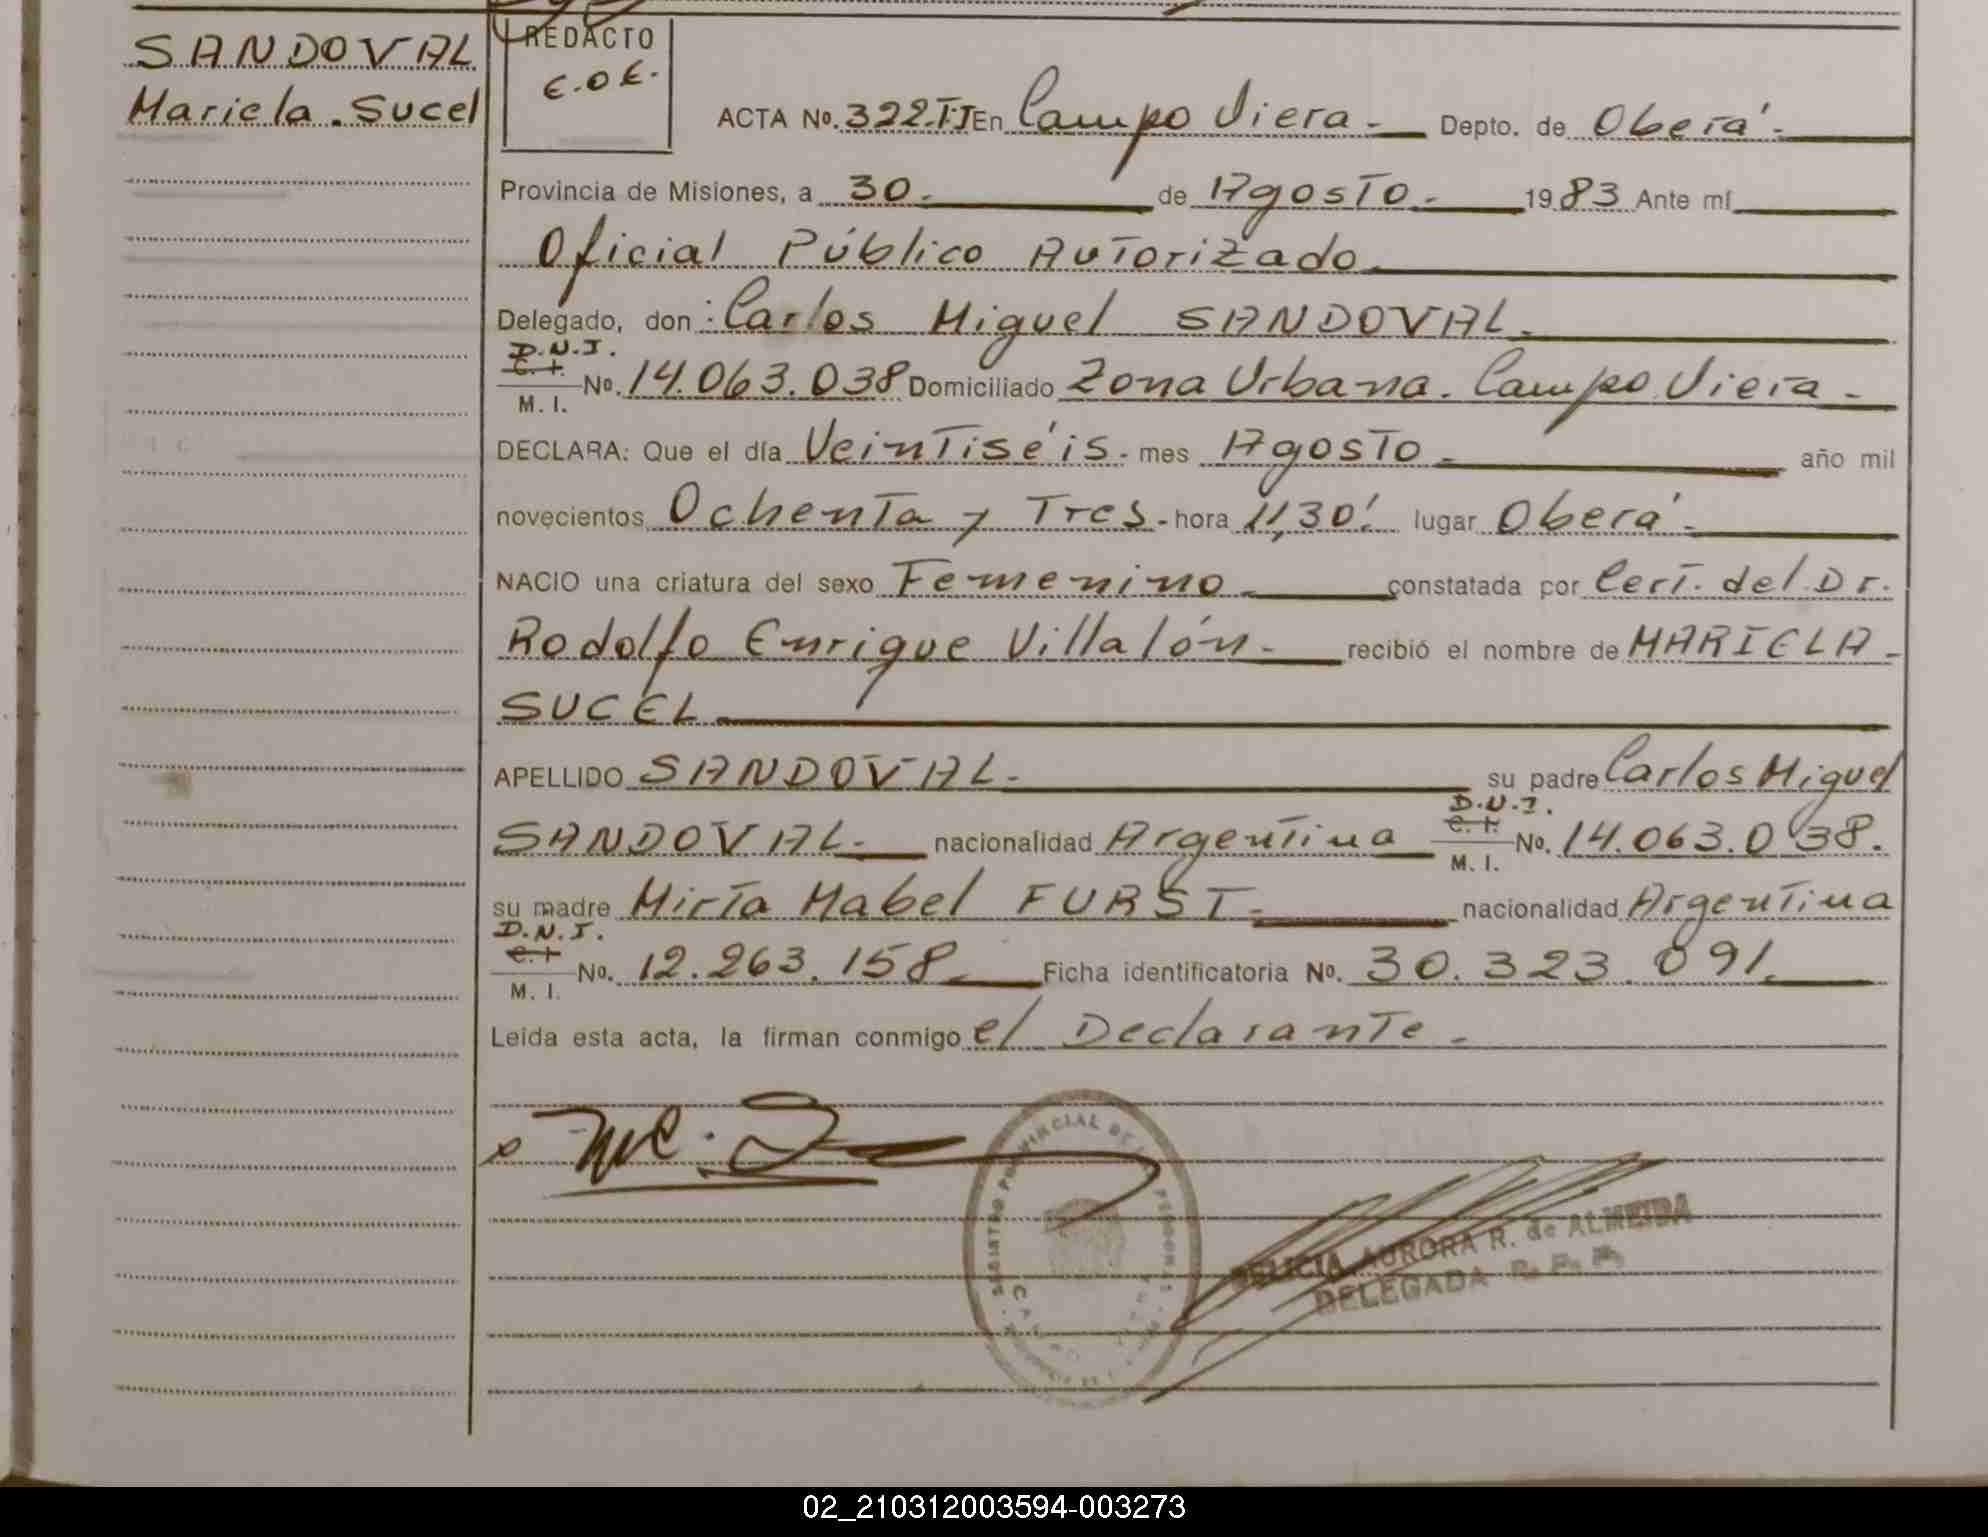 SANDOVAL
Mariela. Sucel
REDACTO
E.O.E.
ACTA No. 322.TI En Campo Viera.- Depto. de Oberá.-
Provincia de Misiones, a 30.- de Agosto.- 1983 Ante mí
Oficial Público Autorizado.
Delegado, don: Carlos Miguel SANDOVAL.
D.N.I.
C.I.
M. I.
No. 14.063.038 Domiciliado Zona Urbana. Campo Viera.-
DECLARA: Que el día Veintiséis.- mes Agosto.- año mil
novecientos Ochenta y Tres.- hora 11,30' lugar Oberá.-
NACIO una criatura del sexo Femenino.- constatada por Cert. del Dr.
Rodolfo Enrique Villalón.- recibió el nombre de MARIELA-
SUCEL
APELLIDO SANDOVAL.- su padre Carlos Miguel
SANDOVAL.- nacionalidad Argentina D.N.I. C.I. M. I. No. 14.063.038.
su madre Mirta Mabel FURST.- nacionalidad Argentina
D.N.I.
C.I.
M. I.
No. 12.263.158.- Ficha identificatoria No. 30.323.091.
Leída esta acta, la firman conmigo el Declarante.-
REGISTRO PROVINCIAL DE
AURORA R. de ALMEIDA
DELEGADA R. P. P.
02_210312003594-003273